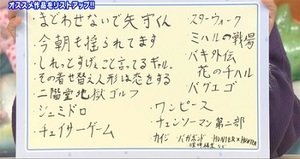 オススメ作品をリストアップ!!
・まどわせないで矢ずくん
・今朝も揺られてます
・しれっとすげぇこと言ってるギャル。
・その着せ替え人形は恋をする
・二階堂地獄ゴルフ
・シュミドロ
・チェイサーゲーム
・スターウォーク
・ミハルの戦場
・バキ外伝 花のチハル
・バグエゴ
・ワンピース
・チェンソーマン 第二部
カイジ バガボンド HUNTER×HUNTER